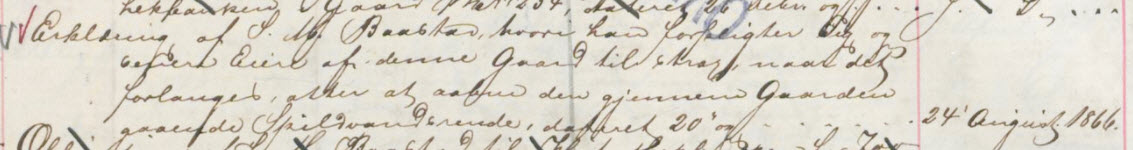 Gaard Matr 254, dateret 26 debr. og
Erklæring af S. M. Baastad, hvori han forpligter sig og
senere Eiere af denne Gaard til strax, naar det
forlanges, atter at aabne den gjennem Gaarden
gaaende Spildvandsrende, dateret 20' og . . . . . . . 24' August 1866.